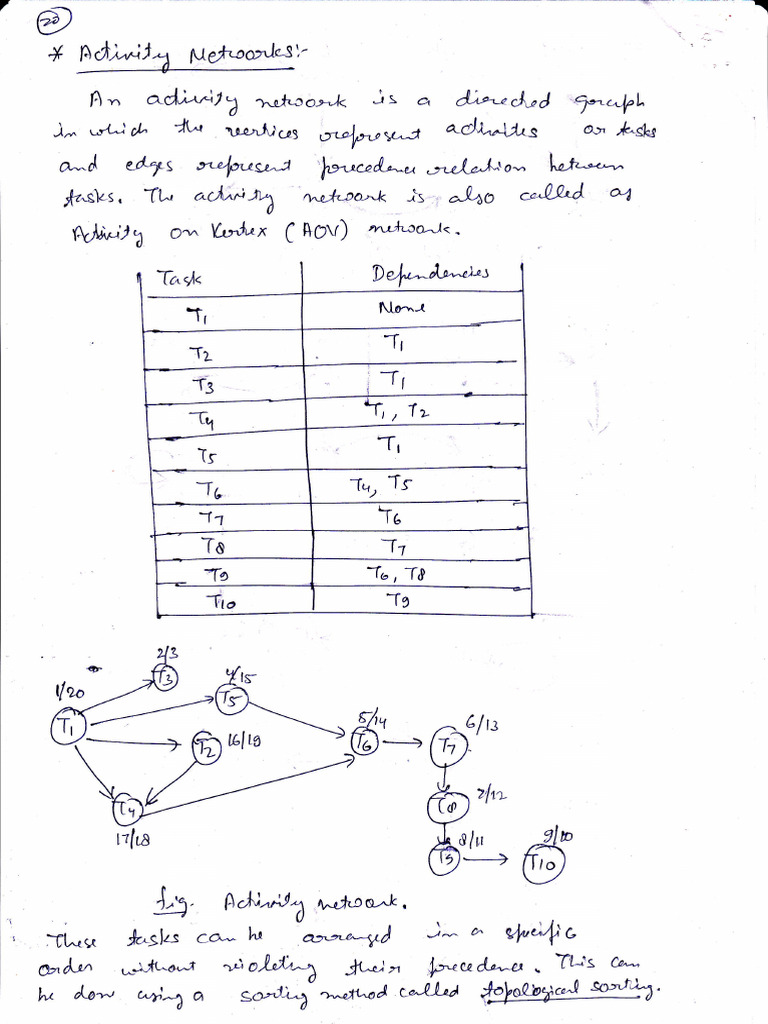 20
* Activity Networks:-
An activity network is a directed graph
in which the vertices represent activites or tasks
and edges represent precedence relation between
tasks. The activity network is also called as
Activity on Vertex (AOV) network.
Task Dependencies
T1 None
T2 T1
T3 T1
T4 T1, T2
T5 T1
T6 T4, T5
T7 T6
T8 T7
T9 T6, T8
T10 T9
2/3
T3
4/15
T5
1/20
T1
16/19
T2
5/14
T6
6/13
T7
T4
17/18
7/12
T8
8/11
T9
9/10
T10
fig. Activity network.
These tasks can be arranged in a specific
order without violeting their precedence. This can
be don using a sorting method called topological sorting.